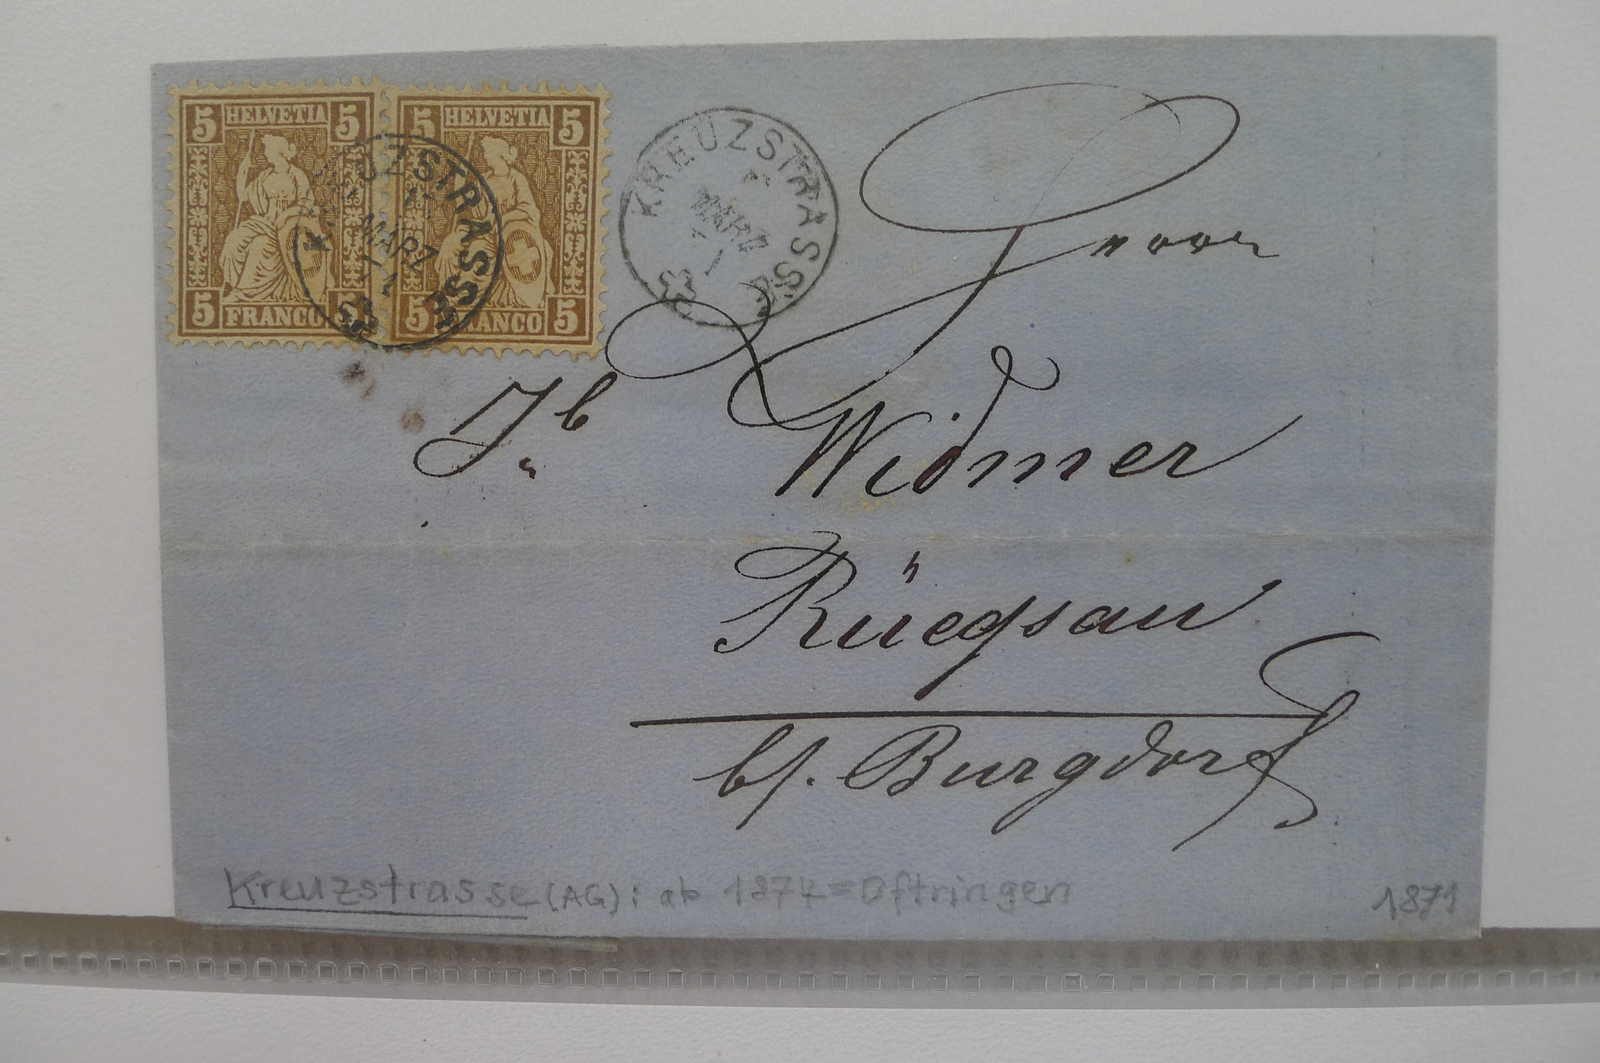 5 HELVETIA 5
5 FRANCO 5
5 HELVETIA 5
5 FRANCO 5
KREUZSTRASSE
MÄRZ
71
KREUZSTRASSE
Herrn
Jb Widmer
Rüegsau
b/. Burgdorf
Kreuzstrasse (AG): ab 1874 = Oftringen
1871